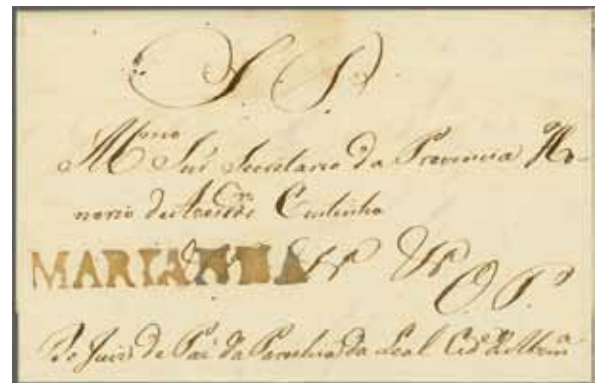 S. P.
M.mo Snr. Secretario da Provincia Ho-
norio Coutinho
MARIANNA
O. P.
Do Juiz de Paz da Parochia da Leal Cid.e